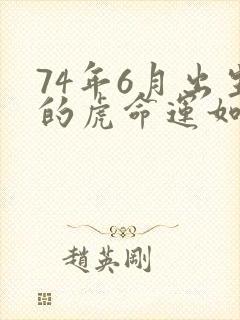 74年6月出生
的虎命运如
趙英剛